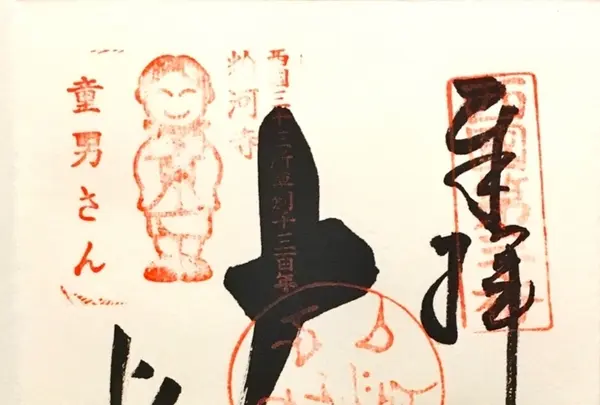 奉拝
西国第三番
大
西国三十三所草創千三百年
粉河寺
童男さん